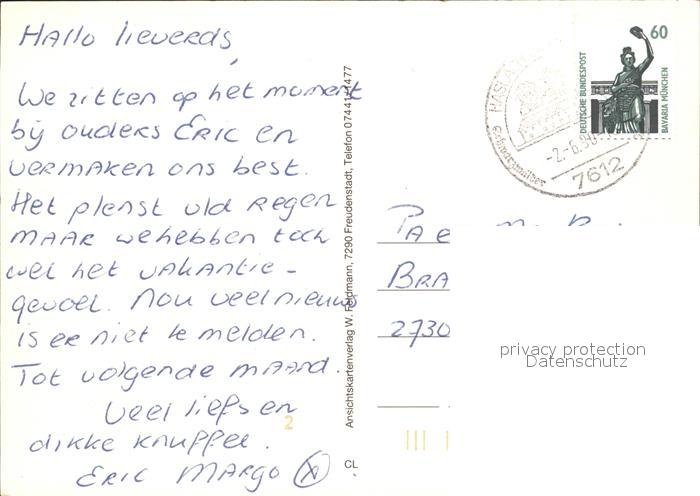 Hallo lieverds,
We zitten op het moment
bij ouders ERIC en
vermaken ons best.
Het plenst vld Regen
MAAR we hebben toch
wel het vakantie-
gevoel. Nou veel nieuws
is er niet te melden.
Tot volgende maand.
Veel liefs en
dikke knuffel.
ERIC MARGO
2
CL
Ansichtskartenverlag W. Feldmann, 7290 Freudenstadt, Telefon 07441/1477
60
DEUTSCHE BUNDESPOST
BAVARIA MÜNCHEN
HASLA
Schwarzwälder
-2.-6.90
7612
PA e
BRA
2730
privacy protection
Datenschutz